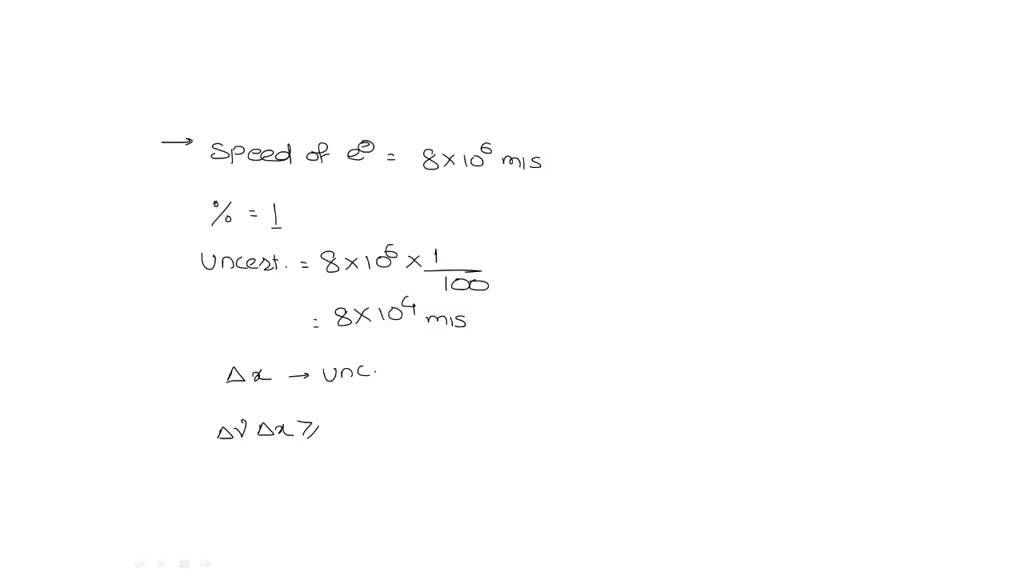 → Speed of e⊖ = 8×10⁶ m/s
% = 1
Uncest. = 8×10⁶ × 1/100
= 8×10⁴ m/s
Δx → Unc.
Δv Δx ≥